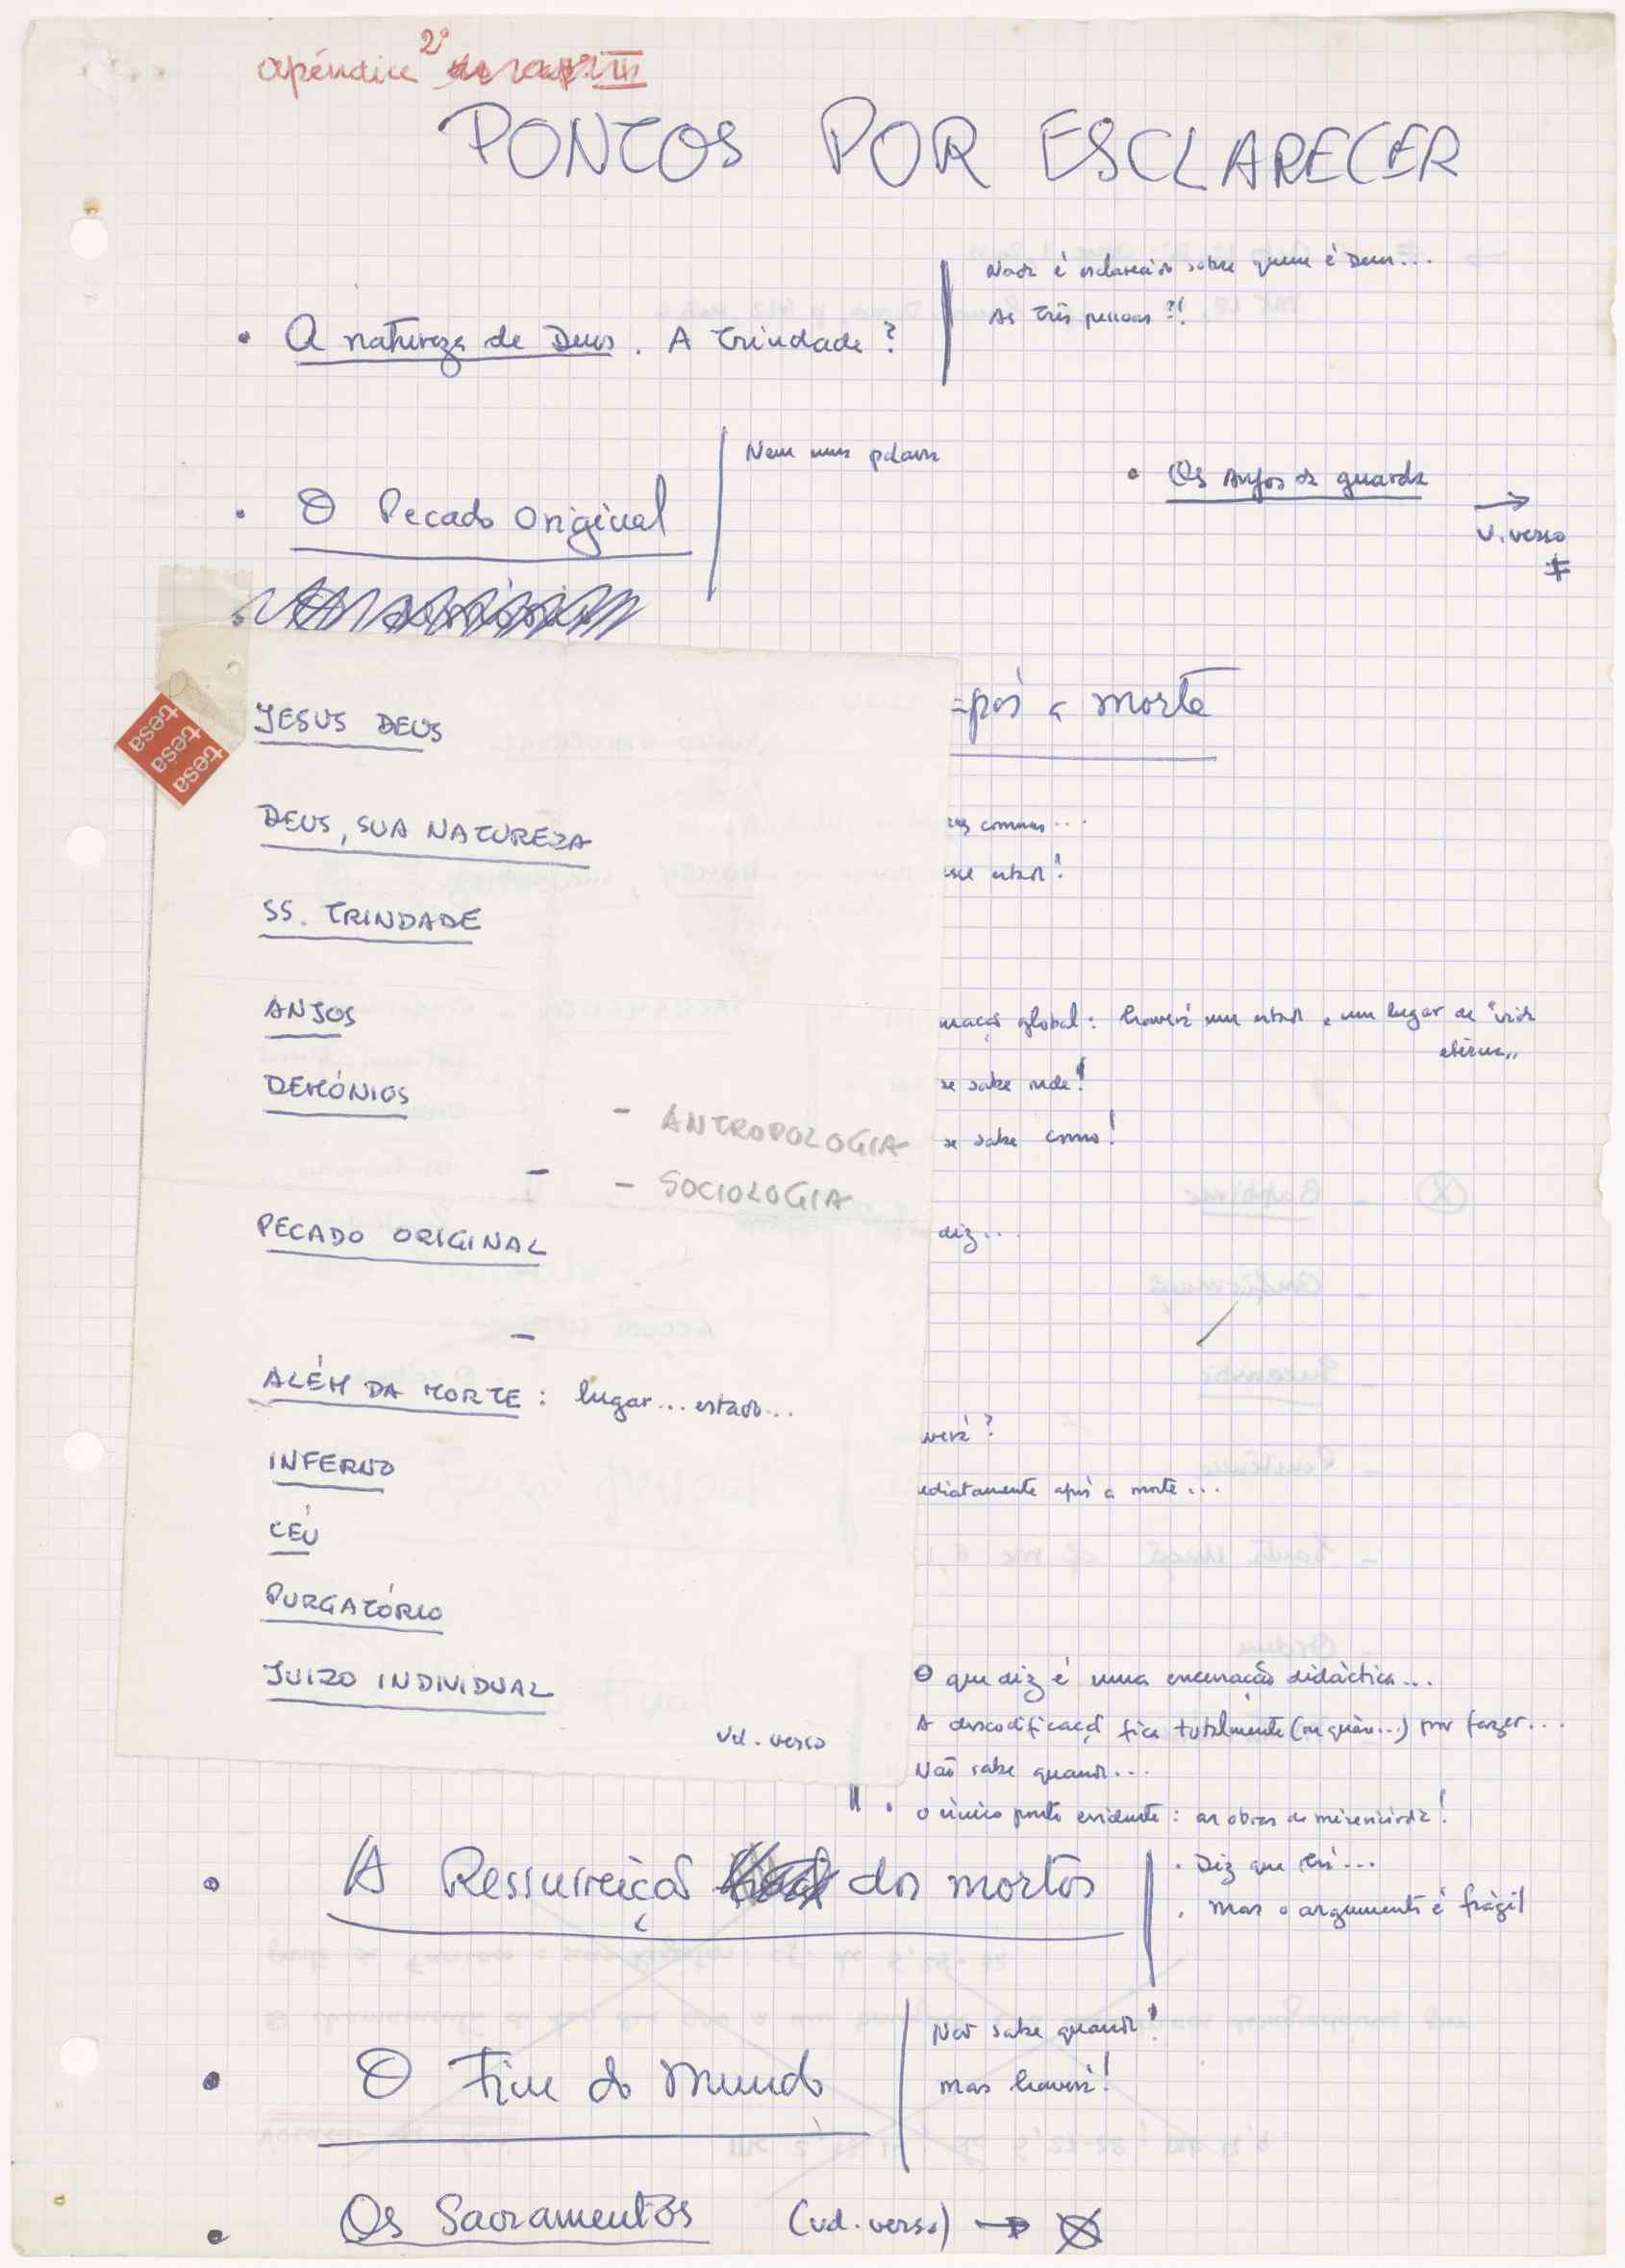 apéndice 2º III
PONTOS POR ESCLARECER
Nada é esclarecido sobre quem é Deus...
As três pessoas ?!
• A natureza de Deus. A Trindade?
Nem uma palavra
• Os Anjos da guarda
→
v. verso
• O Pecado Original
pós a morte
tesa
tesa
tesa
JESUS DEUS
DEUS, SUA NATUREZA
comuns...
estar!
SS. TRINDADE
ANJOS
mação global: haverá um estado e um lugar de "vida
eterna"
DEMÓNIOS
se sabe onde!
- ANTROPOLOGIA
se sabe como!
-
- SOCIOLOGIA
PECADO ORIGINAL
diz...
-
ALÉM DA MORTE: lugar... estado...
verá?
INFERNO
ediatamente após a morte...
CÉU
PURGATÓRIO
JUIZO INDIVIDUAL
O que diz é uma encenação didáctica...
vd. verso
A descodificação fica totalmente (ou quase...) por fazer...
Não sabe quando...
• O único ponto evidente: as obras de misericórdia!
• A Ressurreição dos mortos
• Diz que há...
• mas o argumento é frágil
Não sabe quando!
• O Fim do Mundo
mas haverá!
• Os Sacramentos (vd. verso) →